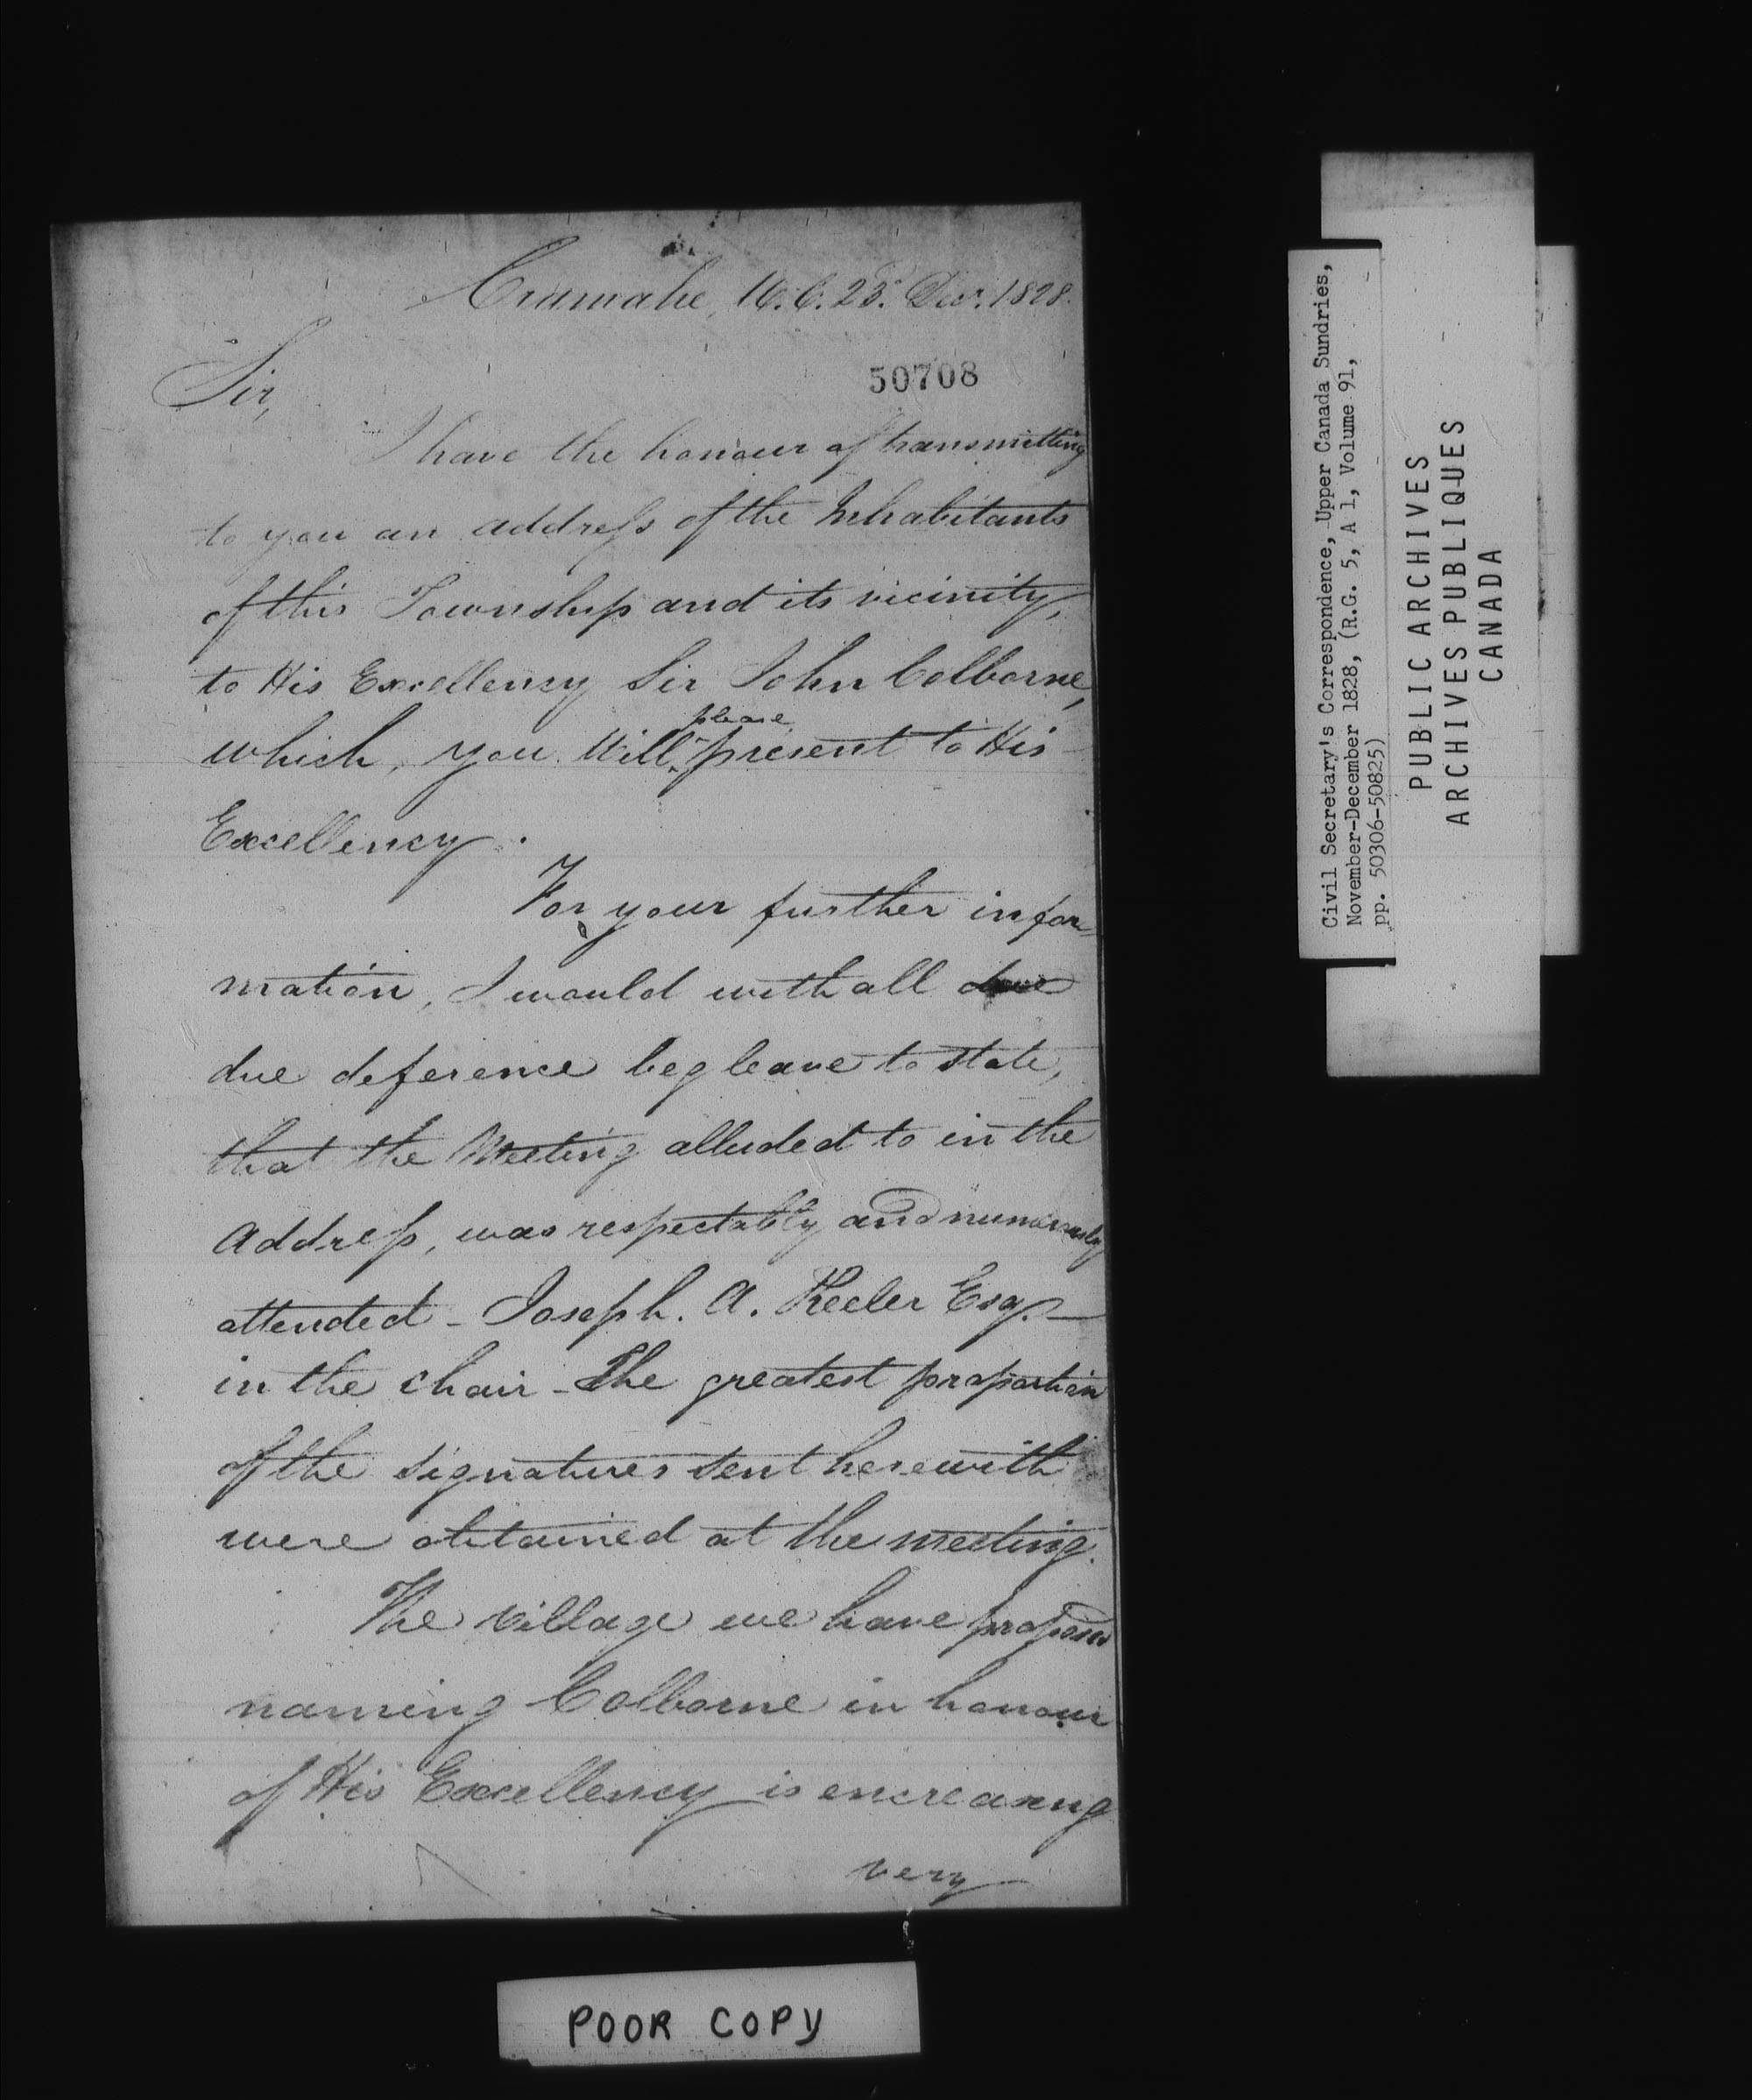 Cramahe, U.C. 23d. Decr. 1828.
50708
Sir,
I have the honour of transmitting
to you an address of the Inhabitants
of this Township and its vicinity,
to His Excellency Sir John Colborne,
which, you will please present to His
Excellency.
For your further infor=
mation, I would with all
due deference beg leave to state,
that the Meeting alluded to in the
Address, was respectably and numerously
attended - Joseph. A. Keeler Esq. -
in the chair - The greatest proportion
of the signatures sent herewith
were obtained at the meeting.
The village we have proposed
naming Colborne in honour
of His Excellency is encreasing
very
POOR COPY
Civil Secretary's Correspondence, Upper Canada Sundries,
November-December 1828, (R.G. 5, A 1, Volume 91,
pp. 50306-50825)
PUBLIC ARCHIVES
ARCHIVES PUBLIQUES
CANADA